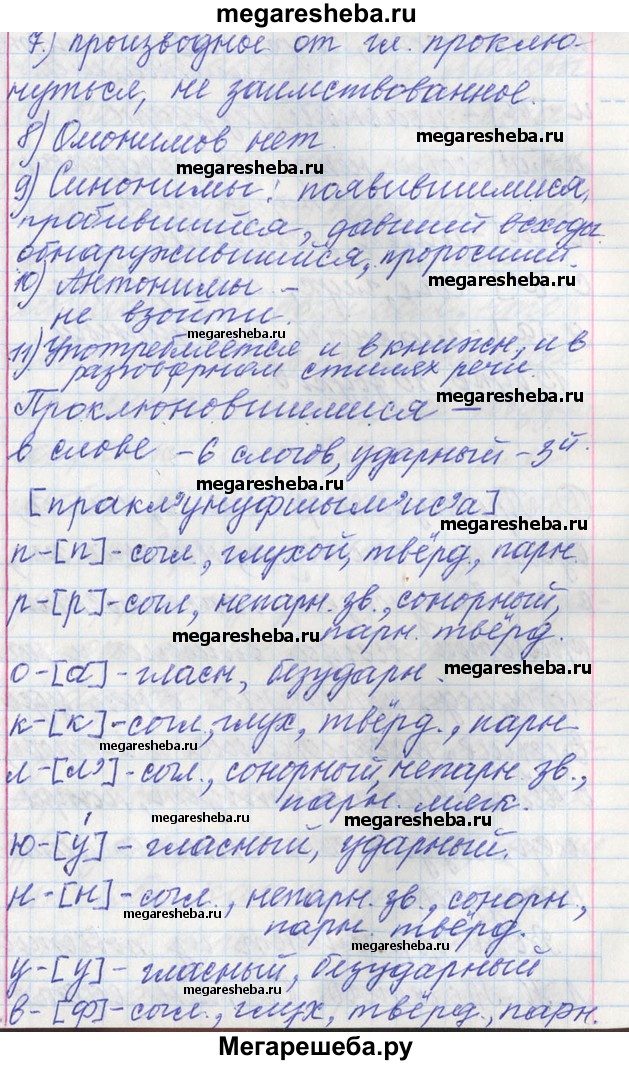 megaresheba.ru
7.) производное от гл. проклю-
нуться, не заимствованное.
8) Омонимов нет.
megaresheba.ru
megaresheba.ru
9) Синонимы: появившимися,
пробившийся, давший всходы
обнаружившийся, проросший.
10) Антонимы –
megaresheba.ru
не взойти.
megaresheba.ru
11) Употребляется и в книжн., и в
разговорном стилях речи.
megaresheba.ru
Проклюновшимися –
в слове – 6 слогов, ударный – 3й.
megaresheba.ru
[пракл'унуфшым'ис'а]
megaresheba.ru
п-[п]-согл., глухой, твёрд., парн.
megaresheba.ru
р-[р]-согл, непарн. зв., сонорный,
парн. твёрд.
megaresheba.ru
о-[а]-гласн, безударн.
megaresheba.ru
к-[к]-согл, глух, твёрд., парн
megaresheba.ru
л-[л']-согл., сонорный, непарн. зв.,
парн. мягк.
megaresheba.ru
megaresheba.ru
ю-[у́]-гласный, ударный.
megaresheba.ru
н-[н]-согл., непарн. зв., сонорн.,
парн. твёрд.
megaresheba.ru
megaresheba.ru
у-[у]-гласный, безударный
megaresheba.ru
в-[ф]-согл., глух, твёрд., парн.
Мегарешеба.ру